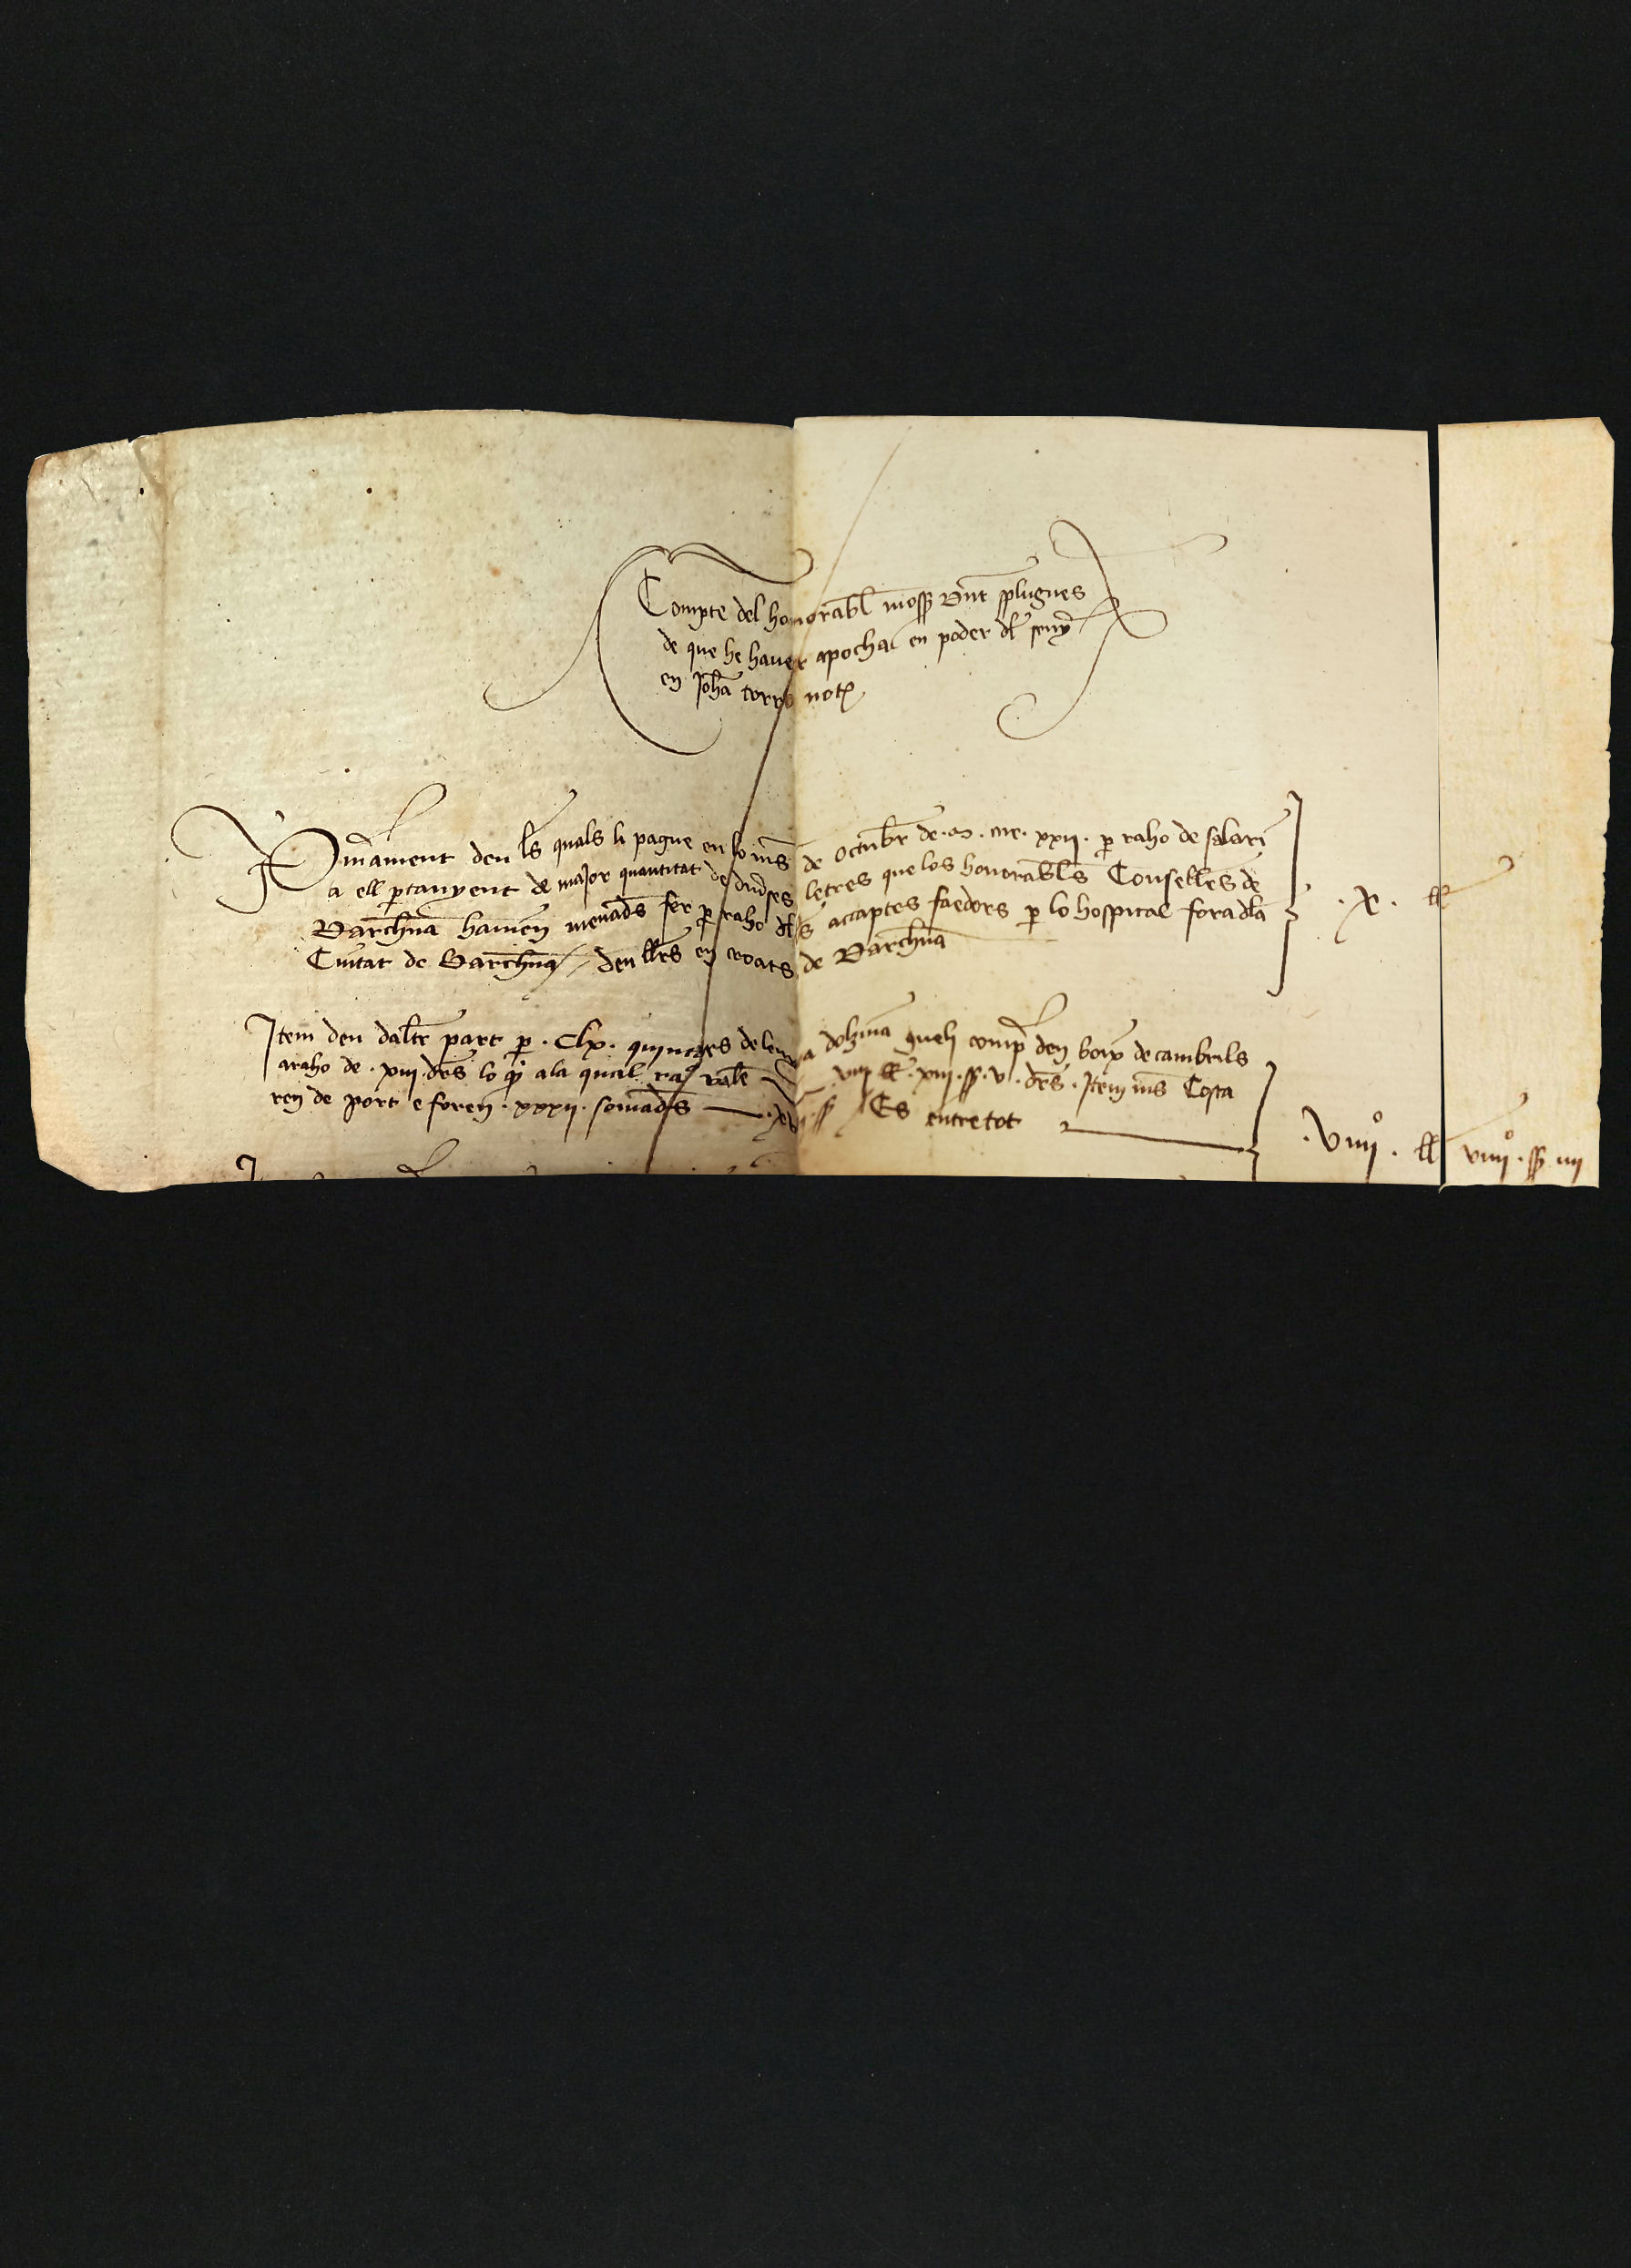 Compte del honorabl moss Bnt splugues
de que he haver apocha en poder dl seny
en Joha torres not
Primament deu ls quals li pague en lo mes de octubr de .m. cccc. xxii. p raho de salari
a ell ptanyent de major quantitat de diverses letres que los honorabls Consellers de
Barchna havien menads fer p raho dls accaptes faedors p lo hospital fora dla
Ciutat de Barchna / deu llrs en croats de Barchna
.x. ll
Item deu daltr part p .Clx. quintars de lenya dolzina queli comp den boix de cambrils
a raho de .xiii. drs lo q ala qual raho vale viii ll .xiii. ss .v. drs. Item mes Costa
ren de port e foren .xxxii. somads ss Es entretot
.viiiiº. ll viiiiº. ss iiii